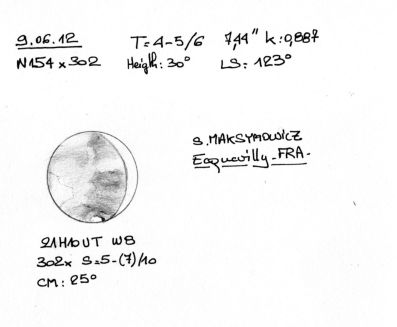 9.06.12 T=4-5/6 7,44" k:0,887
N154x302 Heigth:30° LS:123°
S.MAKSYMOWICZ
Ecquevilly-FRA-
21H10UT W8
302x S=5-(7)/10
CM:25°